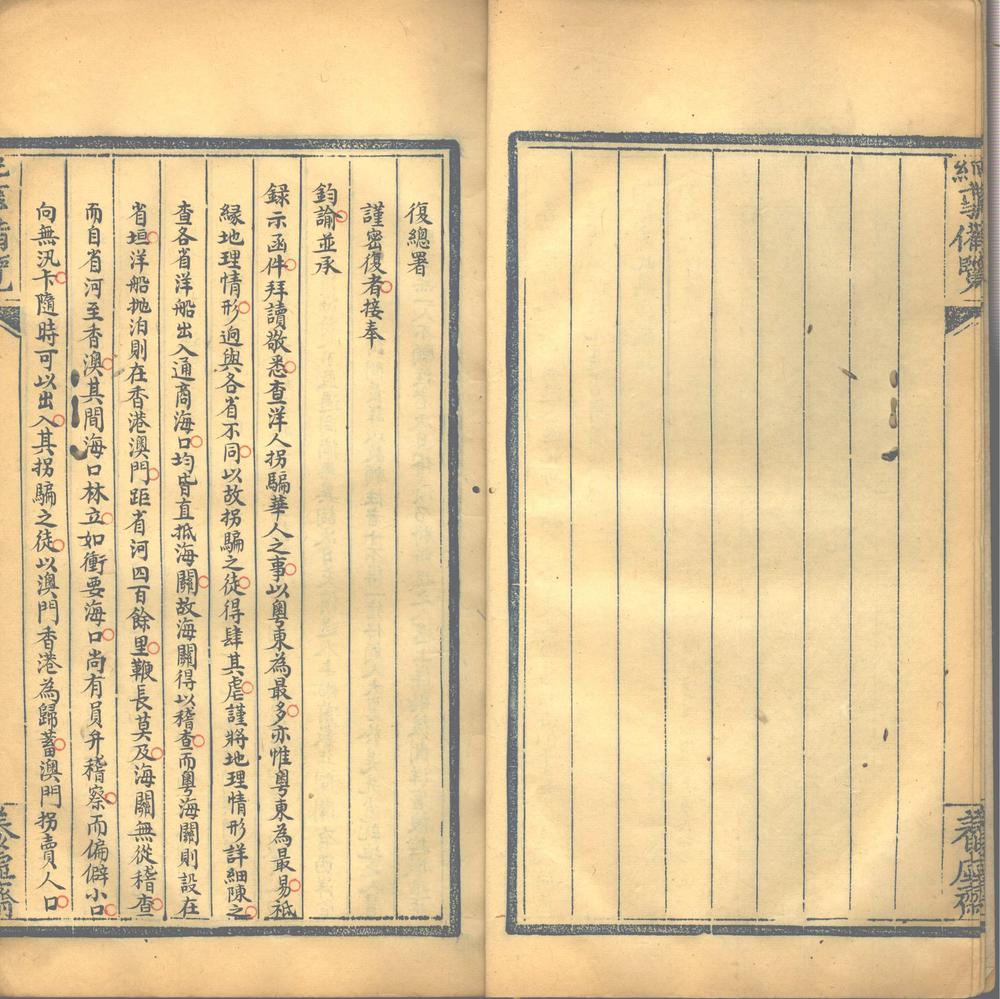 備覽
復總署
謹密復者接奉
鈞諭並承
録示函件拜讀敬悉查洋人拐騙華人之事以粵東為最多亦惟粵東為最易祗
緣地理情形逈與各省不同以故拐騙之徒得肆其虐謹將地理情形詳細陳之
查各省洋船出入通商海口均皆直抵海關故海關得以稽查而粵海關則設在
省垣洋船拋泊則在香港澳門距省河四百餘里鞭長莫及海關無從稽查
而自省河至香澳其間海口林立如衝要海口尚有員弁稽察而偏僻小口
向無汛卡隨時可以出入其拐騙之徒以澳門香港為歸蓄澳門拐賣人口